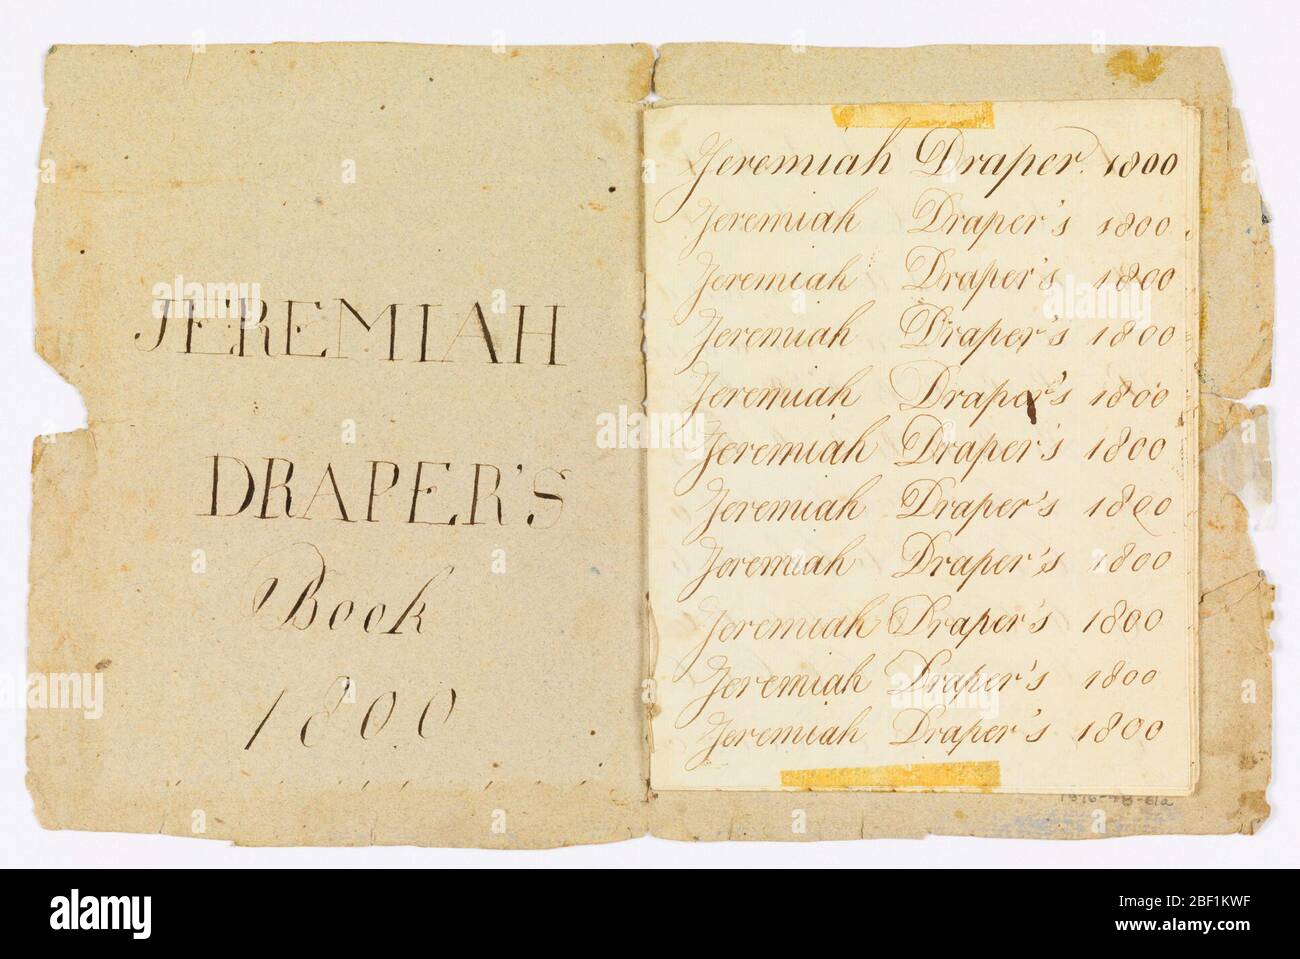 JEREMIAH
DRAPER'S
Book
1800
Jeremiah Draper. 1800
Jeremiah Draper's 1800
Jeremiah Draper's 1800
Jeremiah Draper's 1800
Jeremiah Draper's 1800
Jeremiah Draper's 1800
Jeremiah Draper's 1800
Jeremiah Draper's 1800
Jeremiah Draper's 1800
Jeremiah Draper's 1800
Jeremiah Draper's 1800
alamy
Image ID: 2BF1KWF
www.alamy.com